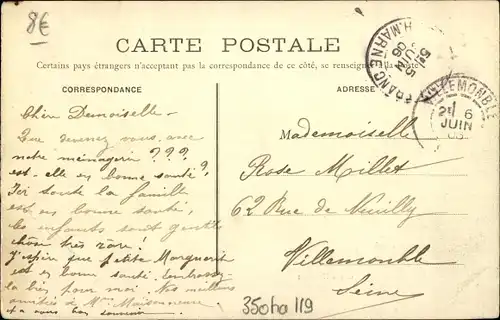 8€
CARTE POSTALE
Certains pays étrangers n'acceptant pas la correspondance de ce côté, se renseigner à la Poste
CORRESPONDANCE
ADRESSE
H. MARNE
5
JUIN
06
VILLEMOMBLE
6
JUIN
Chère Demoiselle -
Que devenez vous avec
notre ménagerie ???
est-elle en bonne santé ?
Ici toute la famille
est en bonne santé,
les enfants sont gentils
chose très rare !
J'espère que petite Marguerite
est en bonne santé. Embrassez
la bien pour moi. Nos meilleures
amitiés à Mme
et à vous bon souvenir
Mademoiselle
Rose Millet
62 Rue de Neuilly
Villemomble
Seine
350ha 119